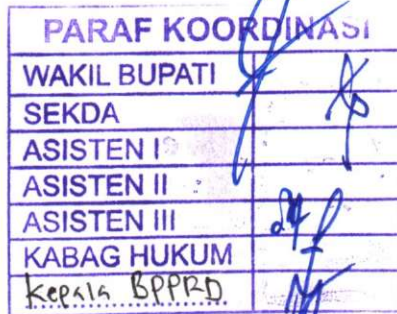 PARAF KOORDINASI
WAKIL BUPATI
SEKDA
ASISTEN I
ASISTEN II
ASISTEN III
KABAG HUKUM
Kepala BPPRD